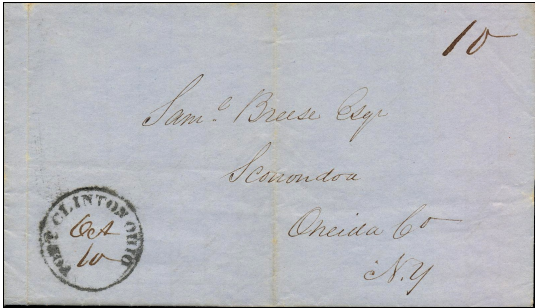 10
Saml. Breese Esqr
Sconondoa
Oneida Co
N.Y
PORT CLINTON OHIO
Oct
10